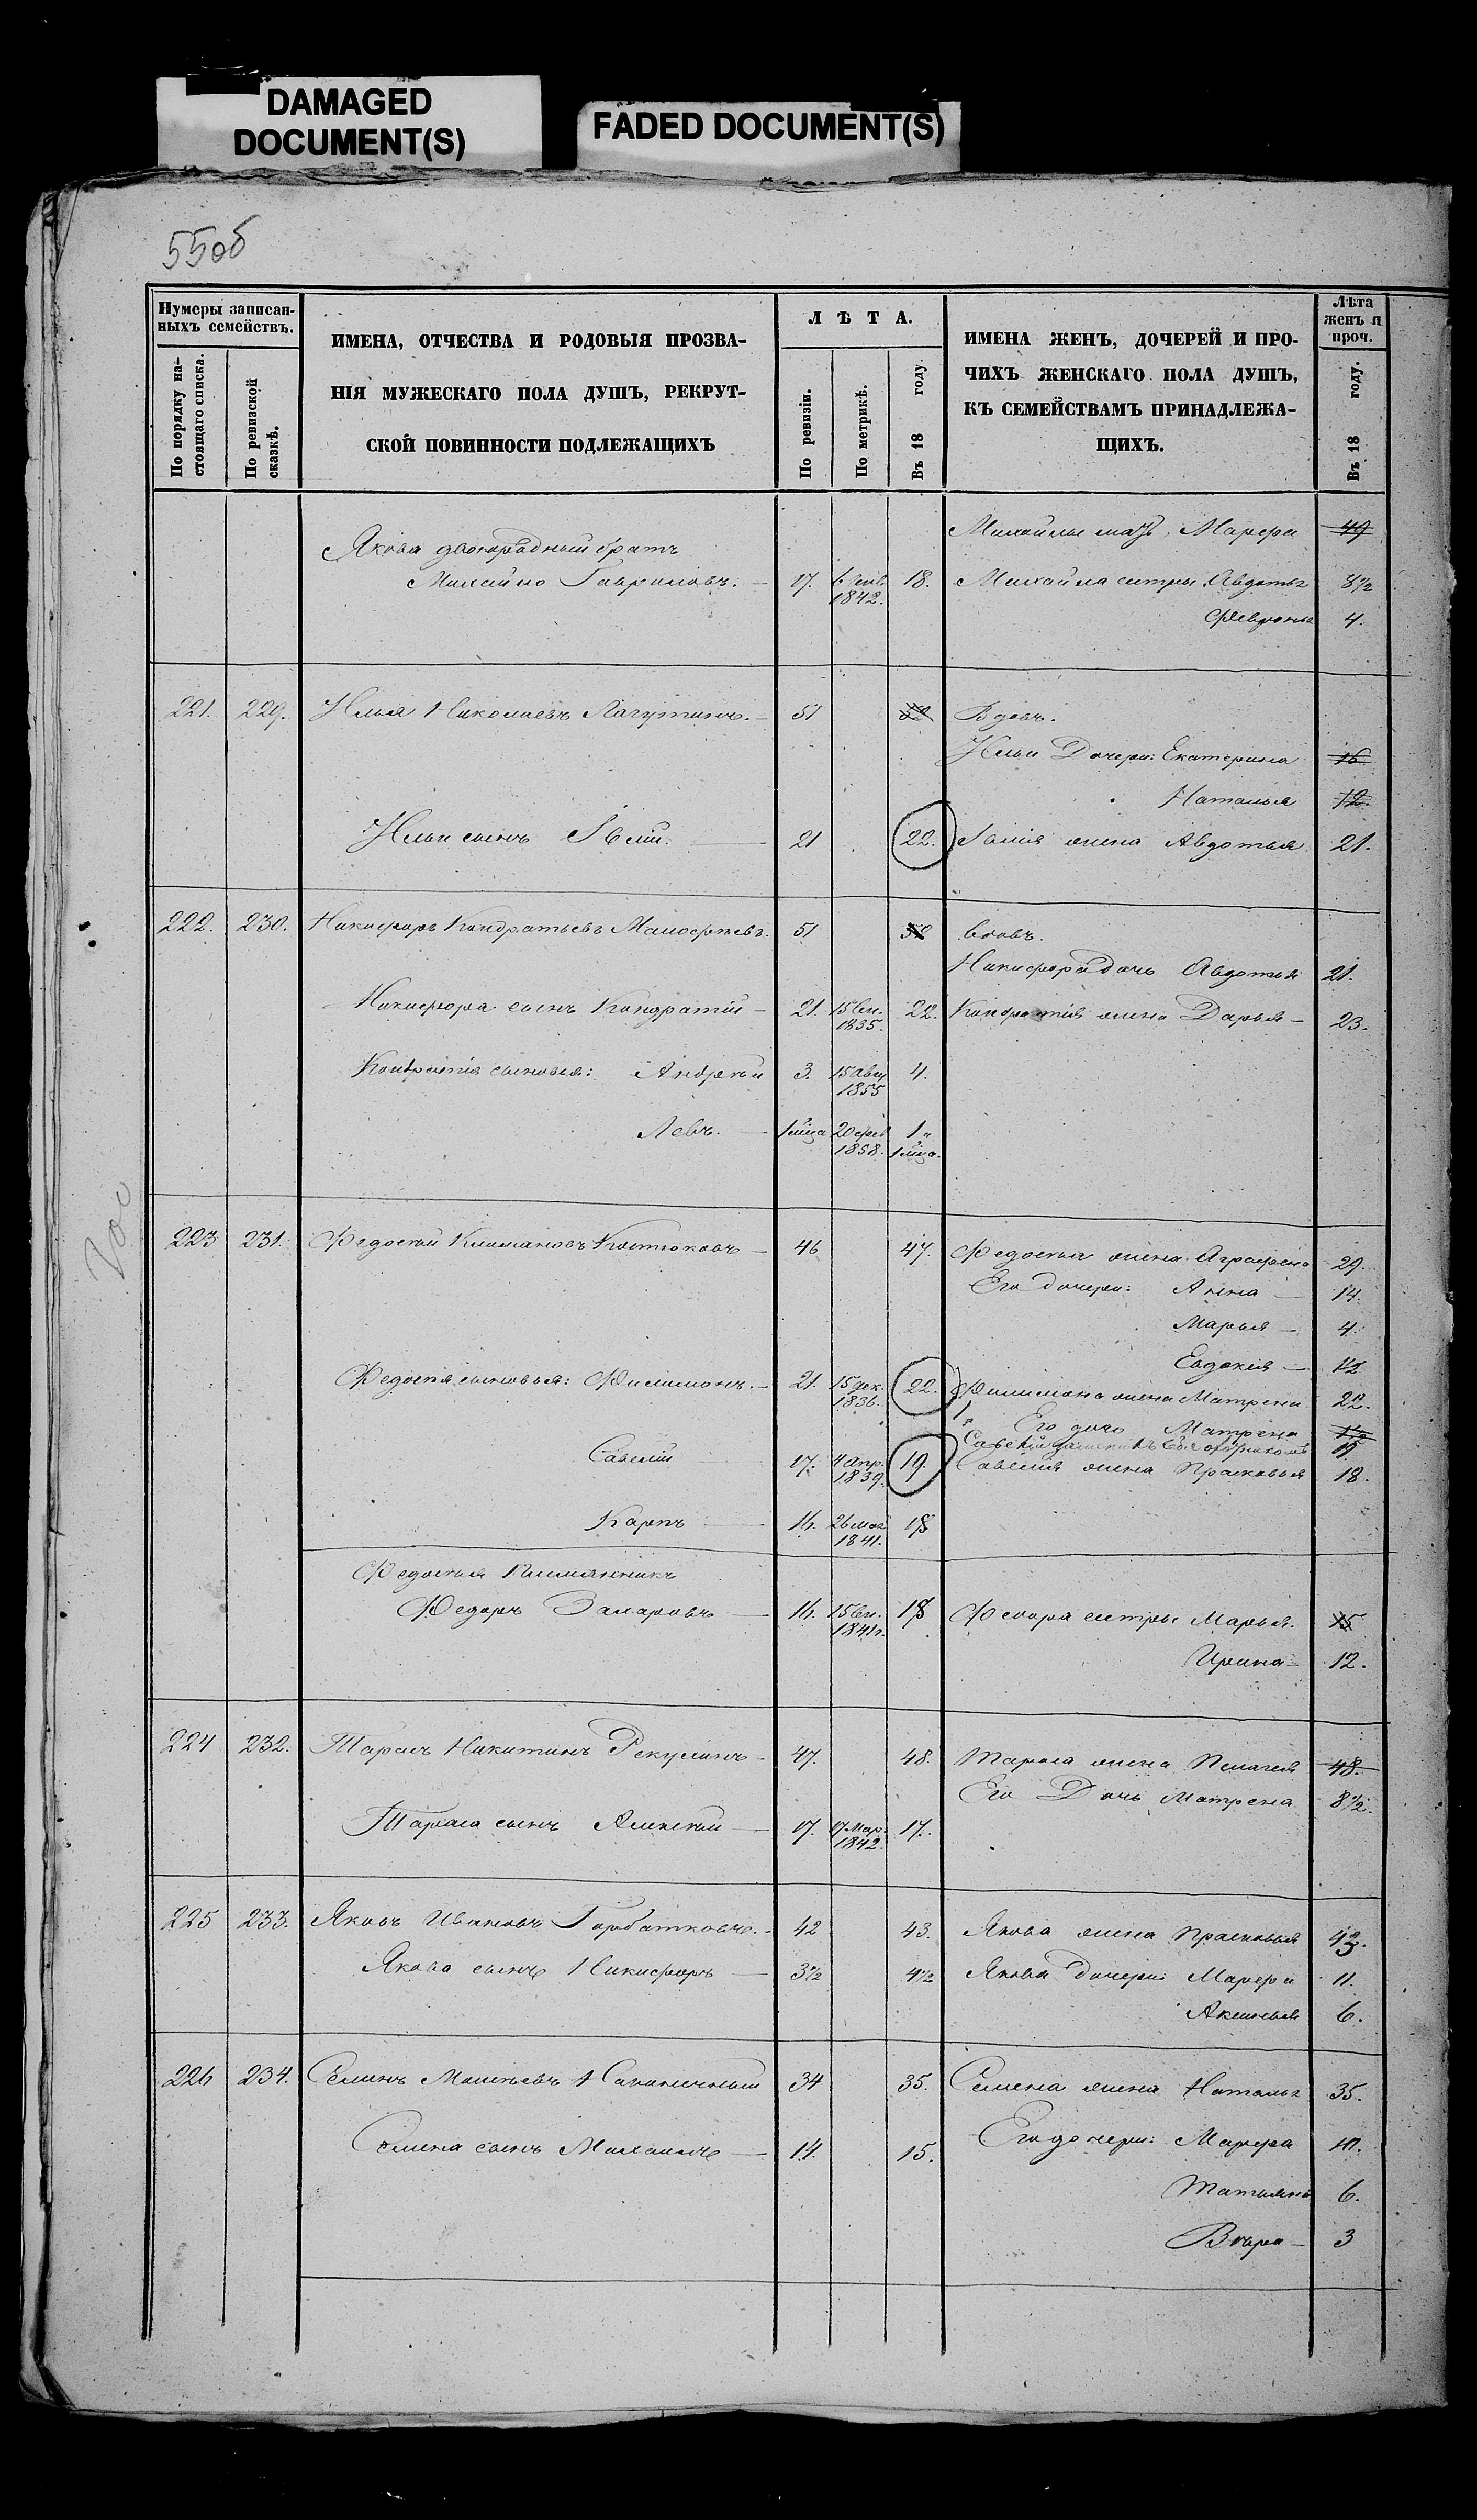 DAMAGED
DOCUMENT(S)
FADED DOCUMENT(S)
55об
Нумеры записан-
ныхъ семействъ.
По порядку на-
стоящаго списка.
По ревизской
сказкѣ.
ИМЕНА, ОТЧЕСТВА И РОДОВЫЯ ПРОЗВА-
НІЯ МУЖЕСКАГО ПОЛА ДУШЪ, РЕКРУТ-
СКОЙ ПОВИННОСТИ ПОДЛЕЖАЩИХЪ
ЛѢТА.
По ревизіи.
По метрикѣ.
Въ 18 году.
ИМЕНА ЖЕНЪ, ДОЧЕРЕЙ И ПРО-
ЧИХЪ ЖЕНСКАГО ПОЛА ДУШЪ,
КЪ СЕМЕЙСТВАМЪ ПРИНАДЛЕЖА-
ЩИХЪ.
Лѣта
женъ и
проч.
Въ 18 году.
Михайлы мать Марфа 49
Якова двоюродный братъ
Михайло Гавриловъ. 17. 1842. 18. Михайла сестры Авдотья 8½
Февронья 4.
221. 229. Илья Николаевъ Лагутинъ. 51 52 Вдовъ.
Ильи Дочери: Екатерина 16
Наталья 12
Ильи сынъ 21 22. жена Авдотья 21.
222. 230. Никифоръ Кондратьевъ 51 52 Вдовъ.
Никифора дочь Авдотья 21.
Никифора сынъ Кондратій 21. 15 Сен. 1835. 22. Кондратія жена Дарья 23.
Кондратія сыновья: Андрей 3. 15 Авг 1855 4.
Левъ. 1 мѣсяца 20 фев 1858. 1 и 1 мѣсяца.
223 231. Федосѣй Климановъ Костюковъ 46 47. Федосѣя жена Аграфена 29.
Его дочери: Анна 14.
Марья 4.
Евдокія ½
Федосѣя сыновья: Филимонъ. 21. 15 дек. 1836. 22. Филимона жена Матрена 22.
Его дочь Матрена
Савелій 17. 4 Апр. 1839. 19. Савелія жена Прасковья 18.
Карпъ 16. 26 мая 1841. 18
Федосѣя племянникъ
Федоръ Захаровъ 16. 15 Сен. 1841г. 18 Федора сестры Марья. 15
Ирина 12.
224 232. Тарасъ Никитинъ Рекунинъ 47. 48. Тараса жена Пелагея 48.
Его Дочь Матрена 8½.
Тараса сынъ Алексѣй 17. 17 Мар. 1842. 17.
225 233. Яковъ Ивановъ Горбатковъ. 42 43. Якова жена Прасковья 43.
Якова сынъ Никифоръ 3½ 4½ Якова дочери: Марфа 11.
Аксинья 6.
226 234. Семенъ 34 35. Семена жена Наталья 35.
Семена сынъ Михаилъ 14. 15. Его дочери: Марфа 10.
Татьяна 6.
Вѣра 3